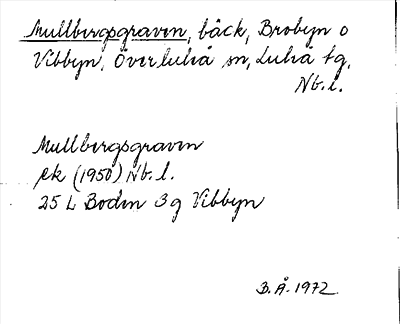 Mullbergsgraven, bäck, Brobyn o
Vibbyn, Överluleå sn, Luleå tg,
Nb. l.
Mullbergsgraven
ek (1950) Nb. l.
25 L Boden 3g Vibbyn
B. Å. 1972.